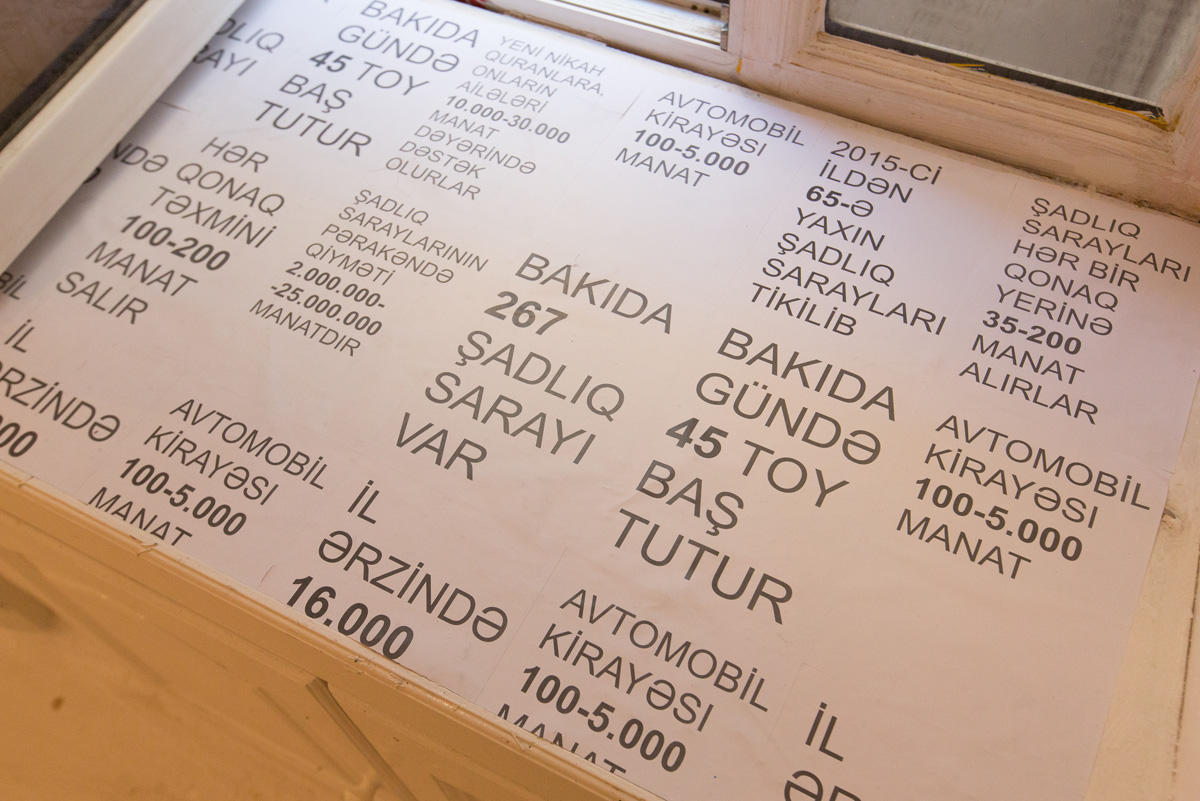 BAKIDA
GÜNDƏ
45 TOY
BAŞ
TUTUR
YENİ NİKAH
QURANLARA,
ONLARIN
AİLƏLƏRİ
10.000-30.000
MANAT
DƏYƏRİNDƏ
DƏSTƏK
OLURLAR
AVTOMOBİL
KİRAYƏSI
100-5.000
MANAT
2015-Cİ
İLDƏN
65-Ə
YAXIN
ŞADLIQ
SARAYLARI
TİKİLİB
ŞADLIQ
SARAYLARI
HƏR BİR
QONAQ
YERİNƏ
35-200
MANAT
ALIRLAR
HƏR
QONAQ
TƏXMİNİ
100-200
MANAT
SALIR
ŞADLIQ
SARAYLARININ
PƏRAKƏNDƏ
QİYMƏTİ
2.000.000-
-25.000.000
MANATDIR
BAKIDA
267
ŞADLIQ
SARAYI
VAR
BAKIDA
GÜNDƏ
45 TOY
BAŞ
TUTUR
AVTOMOBİL
KİRAYƏSI
100-5.000
MANAT
İL
AVTOMOBİL
KİRAYƏSI
100-5.000
MANAT
İL
ƏRZİNDƏ
16.000
AVTOMOBİL
KİRAYƏSI
100-5.000
MANAT
İL